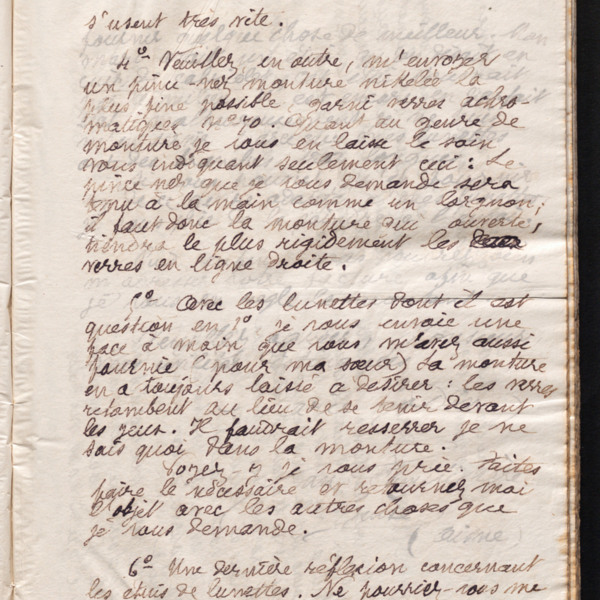 s'usent très vite.
4° Veuillez, en outre, m'envoyer
un pince-nez monture nikelée la
plus fine possible, garni verres achro-
matiques n° 70. Quant au genre de
monture je vous en laisse le soin
vous indiquant seulement ceci : Le
pince nez que je vous demande sera
tenu à la main comme un lorgnon ;
il faut donc la monture qui ouverte,
tiendra le plus rigidement les
verres en ligne droite.
5° Avec les lunettes dont il est
question en 1° je vous envoie une
face à main que vous m'avez aussi
fournie (pour ma sœur) La monture
en a toujours laissé à désirer : les verres
retombent au lieu de se tenir devant
les yeux. Il faudrait resserrer je ne
sais quoi dans la monture.
Voyez-y je vous prie. Faites
faire le nécessaire et retournez moi
l'objet avec les autres choses que
je vous demande.
6° Une dernière réflexion concernant
les étuis de lunettes. Ne pourriez-vous me